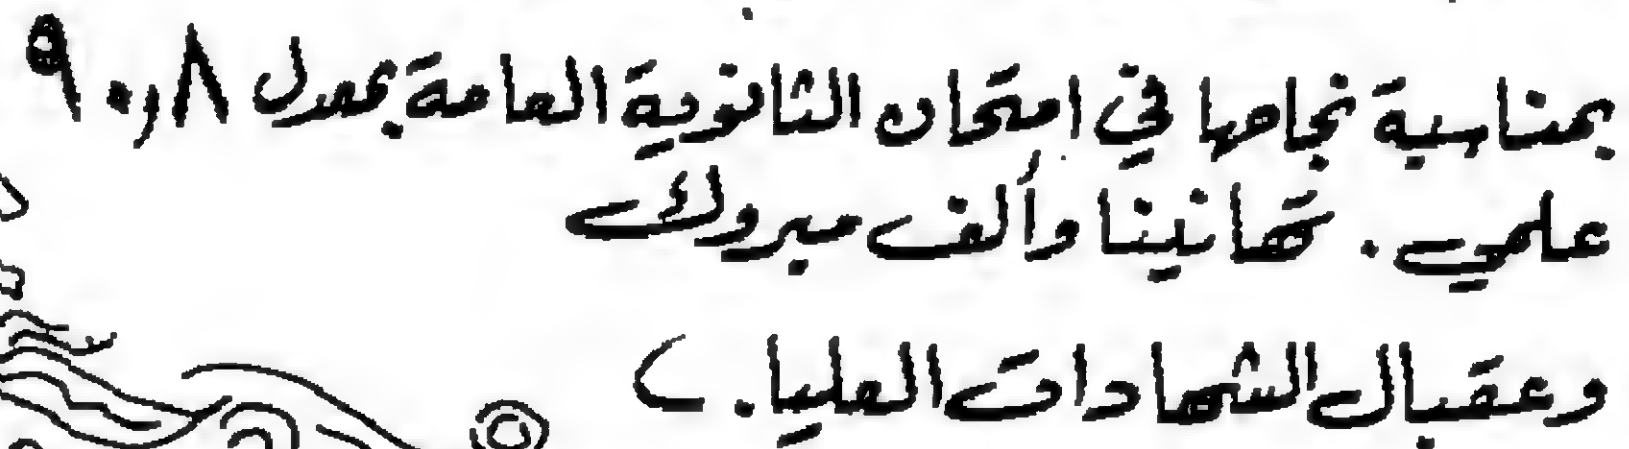 بمناسبة نجاحها في امتحان الثانوية العامة بمعدل ٩٠,٨
علمي . تهانينا وألف مبروك
وعقبال الشهادات العليا .